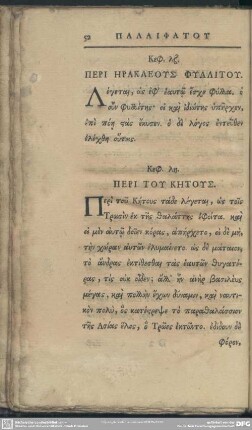 52 ΠΑΛΑΙΦΑΤΟΥ
Κεφ. λζ.
ΠΕΡΙ ΗΡΑΚΛΕΟΥΣ ΦΥΛΛΙΤΟΥ.
Λέγεται, ὡς ἐφ' ἑαυτῷ ἔσχε φύλλα. ὁ
οὖν
λόγος ἐντεῦθεν
ἐλέχθη οὗτος.
Κεφ. λη.
ΠΕΡΙ ΤΟΥ ΚΗΤΟΥΣ.
Περὶ τοῦ Κήτους τάδε λέγεται, ὡς τοῖς
Τρωσὶν ἐκ τῆς θαλάττης ἐφοίτα. καὶ
εἰ μὲν αὐτῷ δοῖεν κόρας, ἀπήρχετο, εἰ δὲ μὴ,
τὴν χώραν αὐτῶν ἐλυμαίνετο. ὡς δὲ μάταιον,
τὸ ἄνδρας ἐκτίθεσθαι τὰς ἑαυτῶν θυγατέ-
ρας, τίς οὐκ οἶδεν; ἀλλ' ἦν ἀνὴρ βασιλεὺς
μέγας, καὶ πολλὴν ἔχων δύναμιν, καὶ ναυτι-
κὸν πολὺ, ὃς κατέτρεψε τὸ παραθαλάσσιον
τῆς Ἀσίας ὅλον, ὃ Τρῶες ἔκτιζον. ἐδίδοσαν δὲ
φόρον,